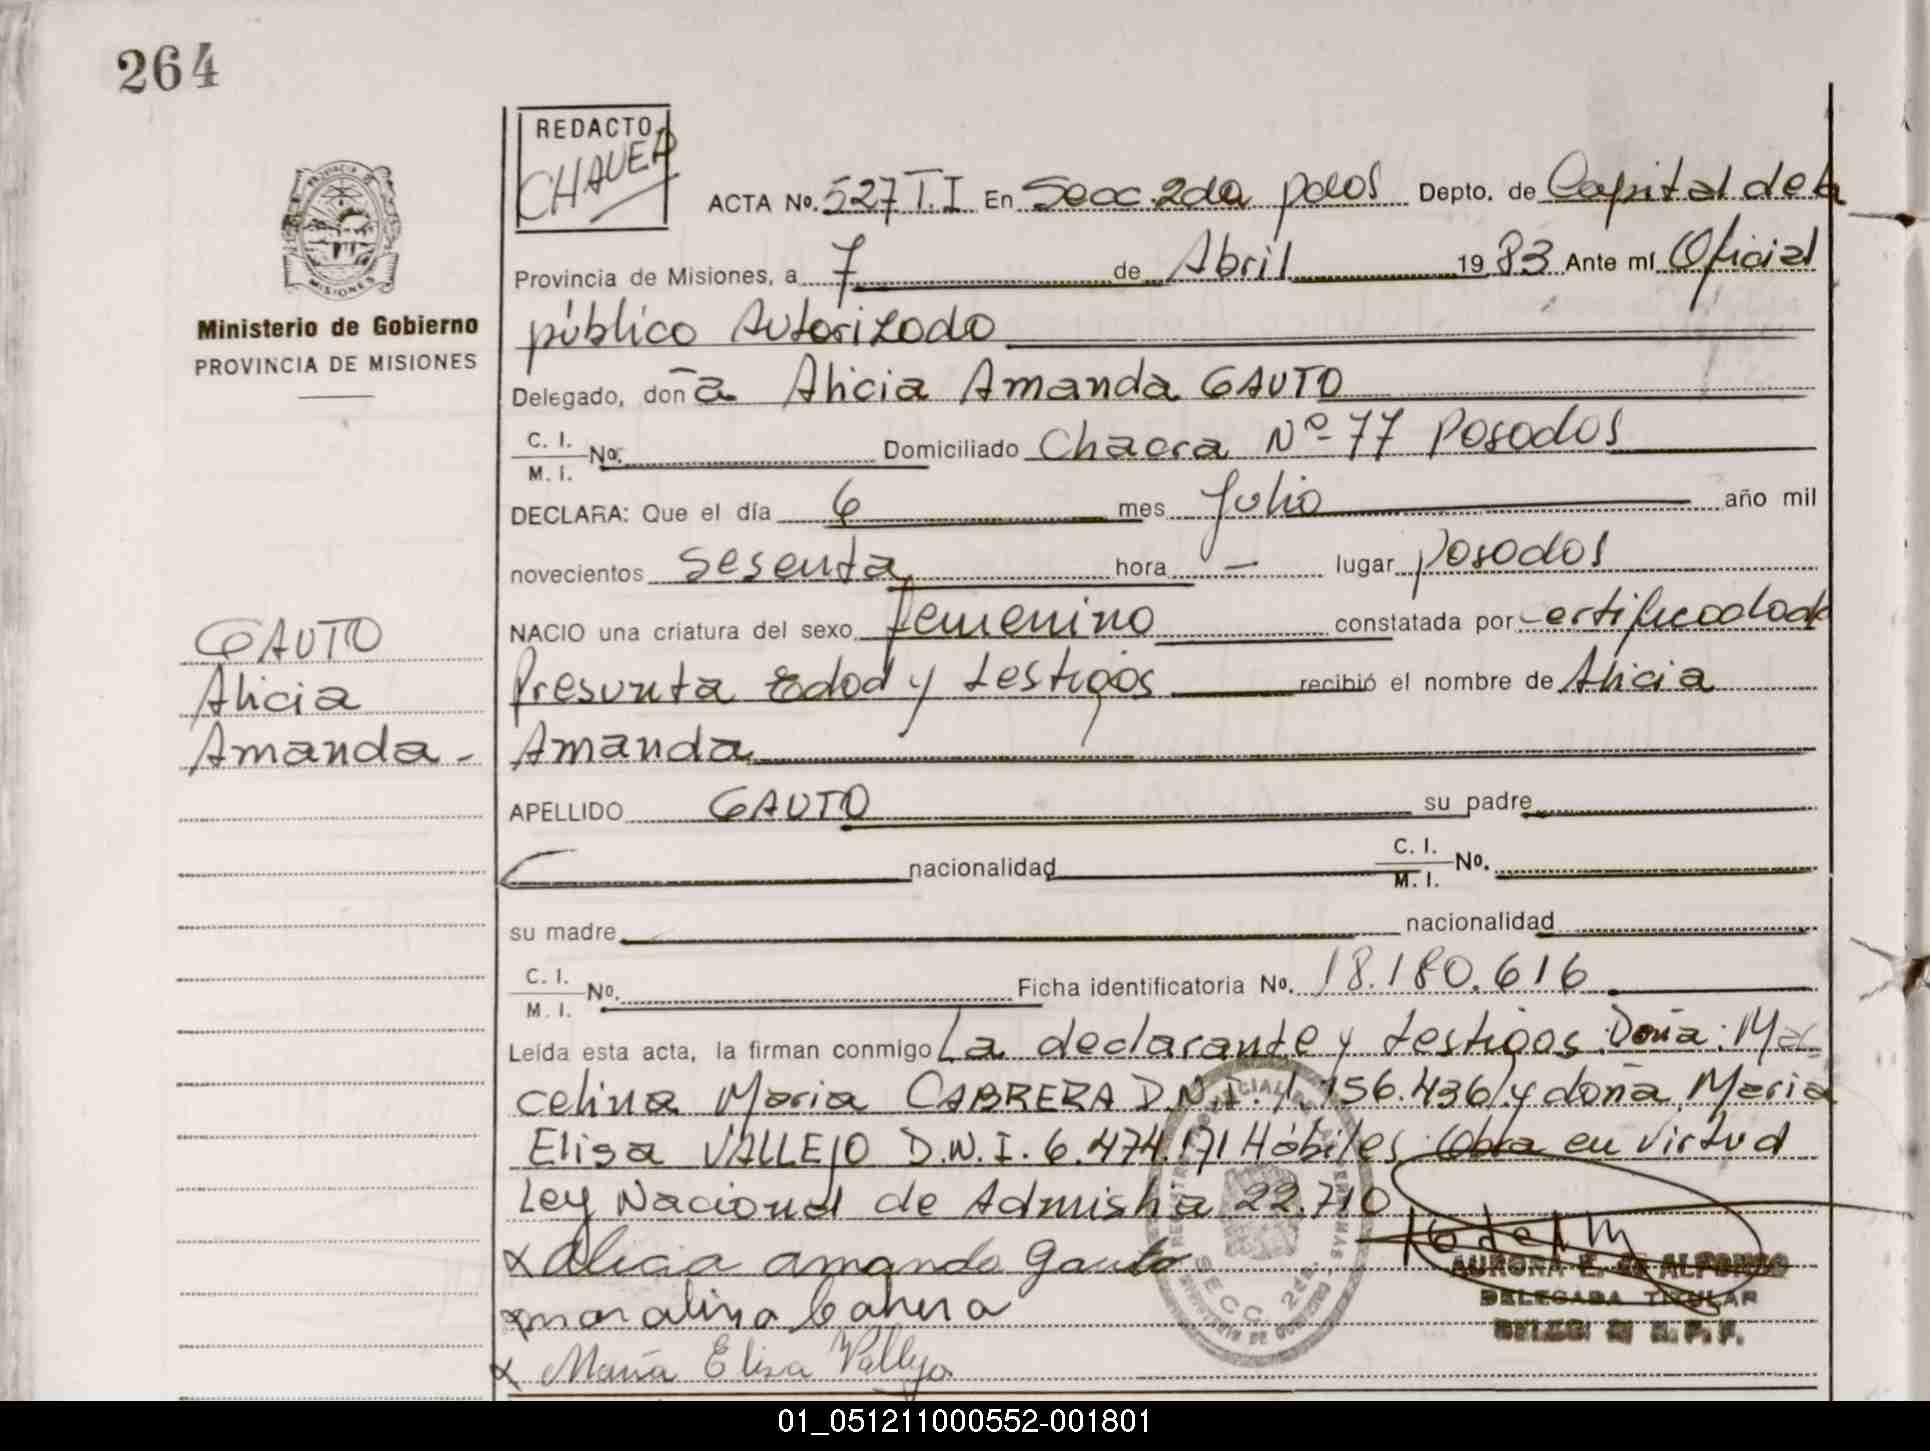 264
REDACTO
CHAVEZ
ACTA No. 527 T.I En Secc. 2da pdas Depto. de Capital de la
Provincia de Misiones, a 7 de Abril 1983 Ante mí Oficial
público Autorizado
Delegado, don ª Alicia Amanda GAUTO
C. I.
M. I. No. Domiciliado Chacra Nº 77 Posadas
DECLARA: Que el día 6 mes Julio año mil
novecientos sesenta hora — lugar posadas
NACIO una criatura del sexo femenino constatada por certificado de
Presunta Edad y testigos recibió el nombre de Alicia
Amanda
APELLIDO GAUTO su padre
nacionalidad C. I.
M. I. No.
su madre nacionalidad
C. I.
M. I. No. Ficha identificatoria No. 18.180.616
Leída esta acta, la firman conmigo La declarante y testigos Doña: Mar
celina Maria CABRERA D.N.I. 1.156.436 y doña Maria
Elisa VALLEJO D.N.I. 6.474.171 Hábiles Obra en virtud
Ley Nacional de Admisha 22.710
x Alicia amanda Gauto
x
x María Elisa Vallejo
AURORA E. DE ALFONSO
DELEGADA TITULAR
SECC. 2da.
PROVINCIA DE MISIONES
Ministerio de Gobierno
PROVINCIA DE MISIONES
GAUTO
Alicia
Amanda -
01_051211000552-001801